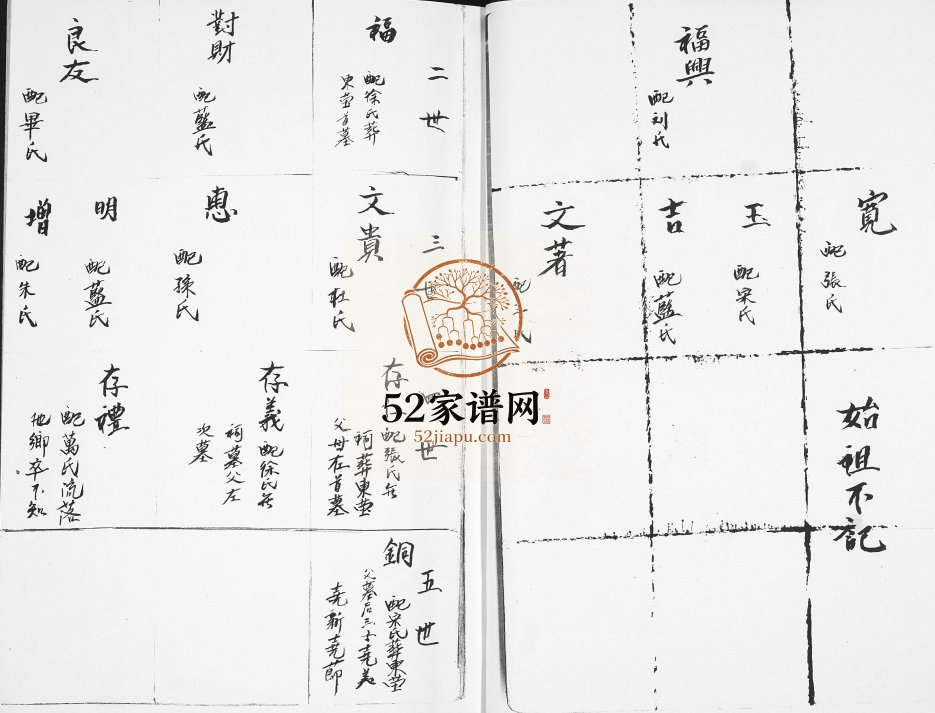 福興
配刘氏
寬
配張氏
玉
配宋氏
吉
配藍氏
文著
配
氏
始祖不記
二世
福
配徐氏葬
東茔首墓
對財
配藍氏
良友
配畢氏
三世
文貴
配杜氏
惠
配孫氏
明
配藍氏
增
配朱氏
四世
存
配張氏
祠葬東茔
父母在首墓
存義
配徐氏
祠墓父左
次墓
存禮
配萬氏流落
他鄉卒不知
五世
銅
配宋氏葬東茔
父墓后三子堯
堯新堯節
52家谱网
52jiapu.com